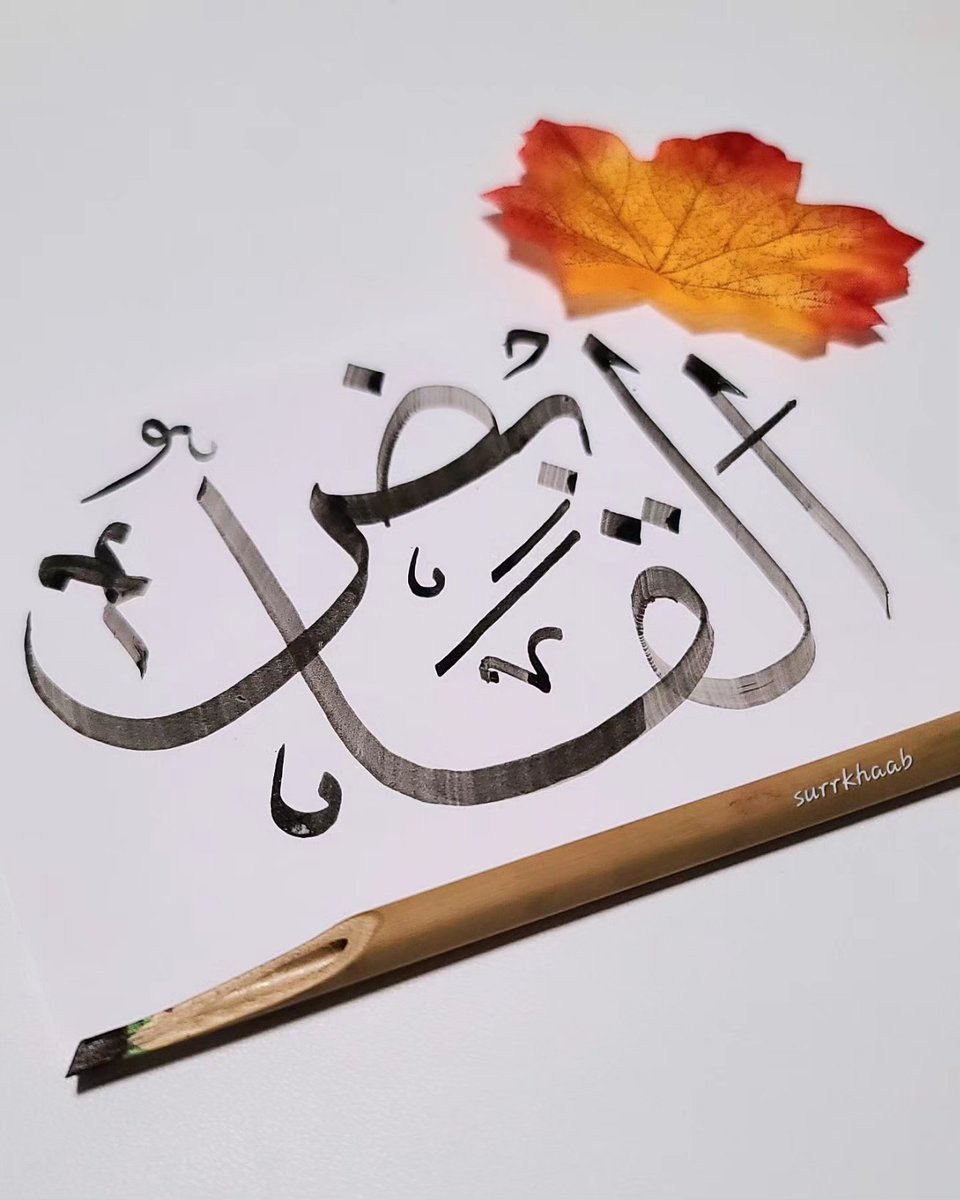 اَلْقَابِضُ
surrkhaab